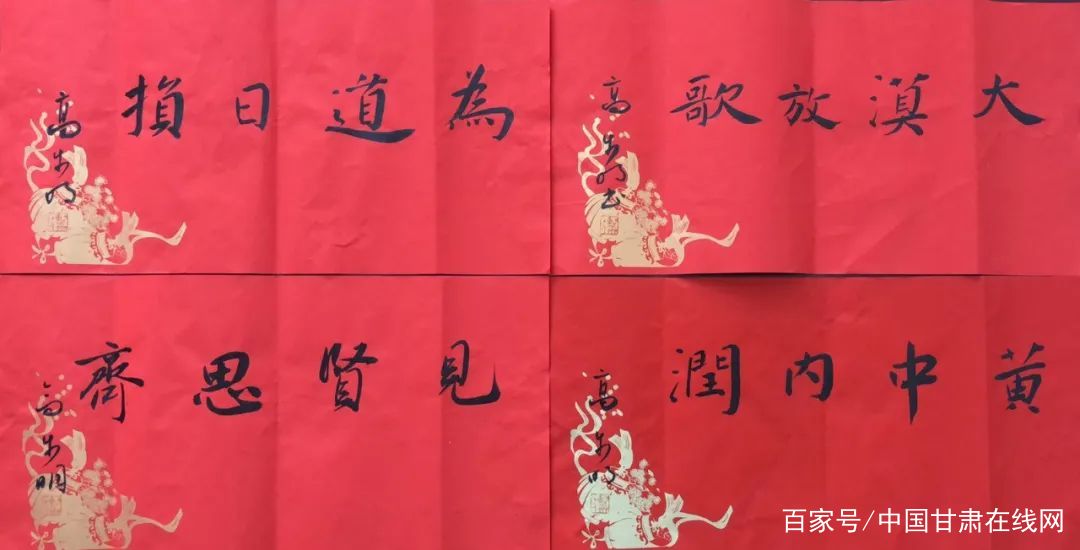 為道日損
高步明
大漠放歌
高步明书
見賢思齊
高步明
黄中内潤
高步明
百家号/中国甘肃在线网